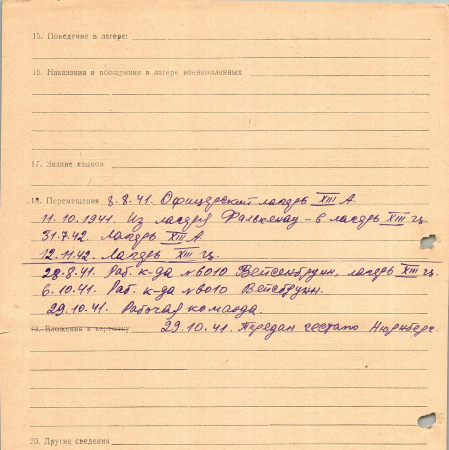 15. Поведение в лагере:
16. Наказания и поощрения в лагере военнопленных
17. Знание языков
18. Перемещения 8.8.41. Офицерский лагерь XIII А.
11.10.1941. Из лагеря Фалькенау - в лагерь XIII гц.
31.7.42. Лагерь XIII А.
12.11.42. Лагерь XIII гц.
28.8.41. Раб. к-да №6010 Вейсенбрунн, лагерь XIII гц.
6.10.41. Раб. к-да №6010 Вейсбрунн.
29.10.41. Рабочая команда.
19. Вложения в карточку 29.10.41. Передан гестапо Нюрнберг.
20. Другие сведения